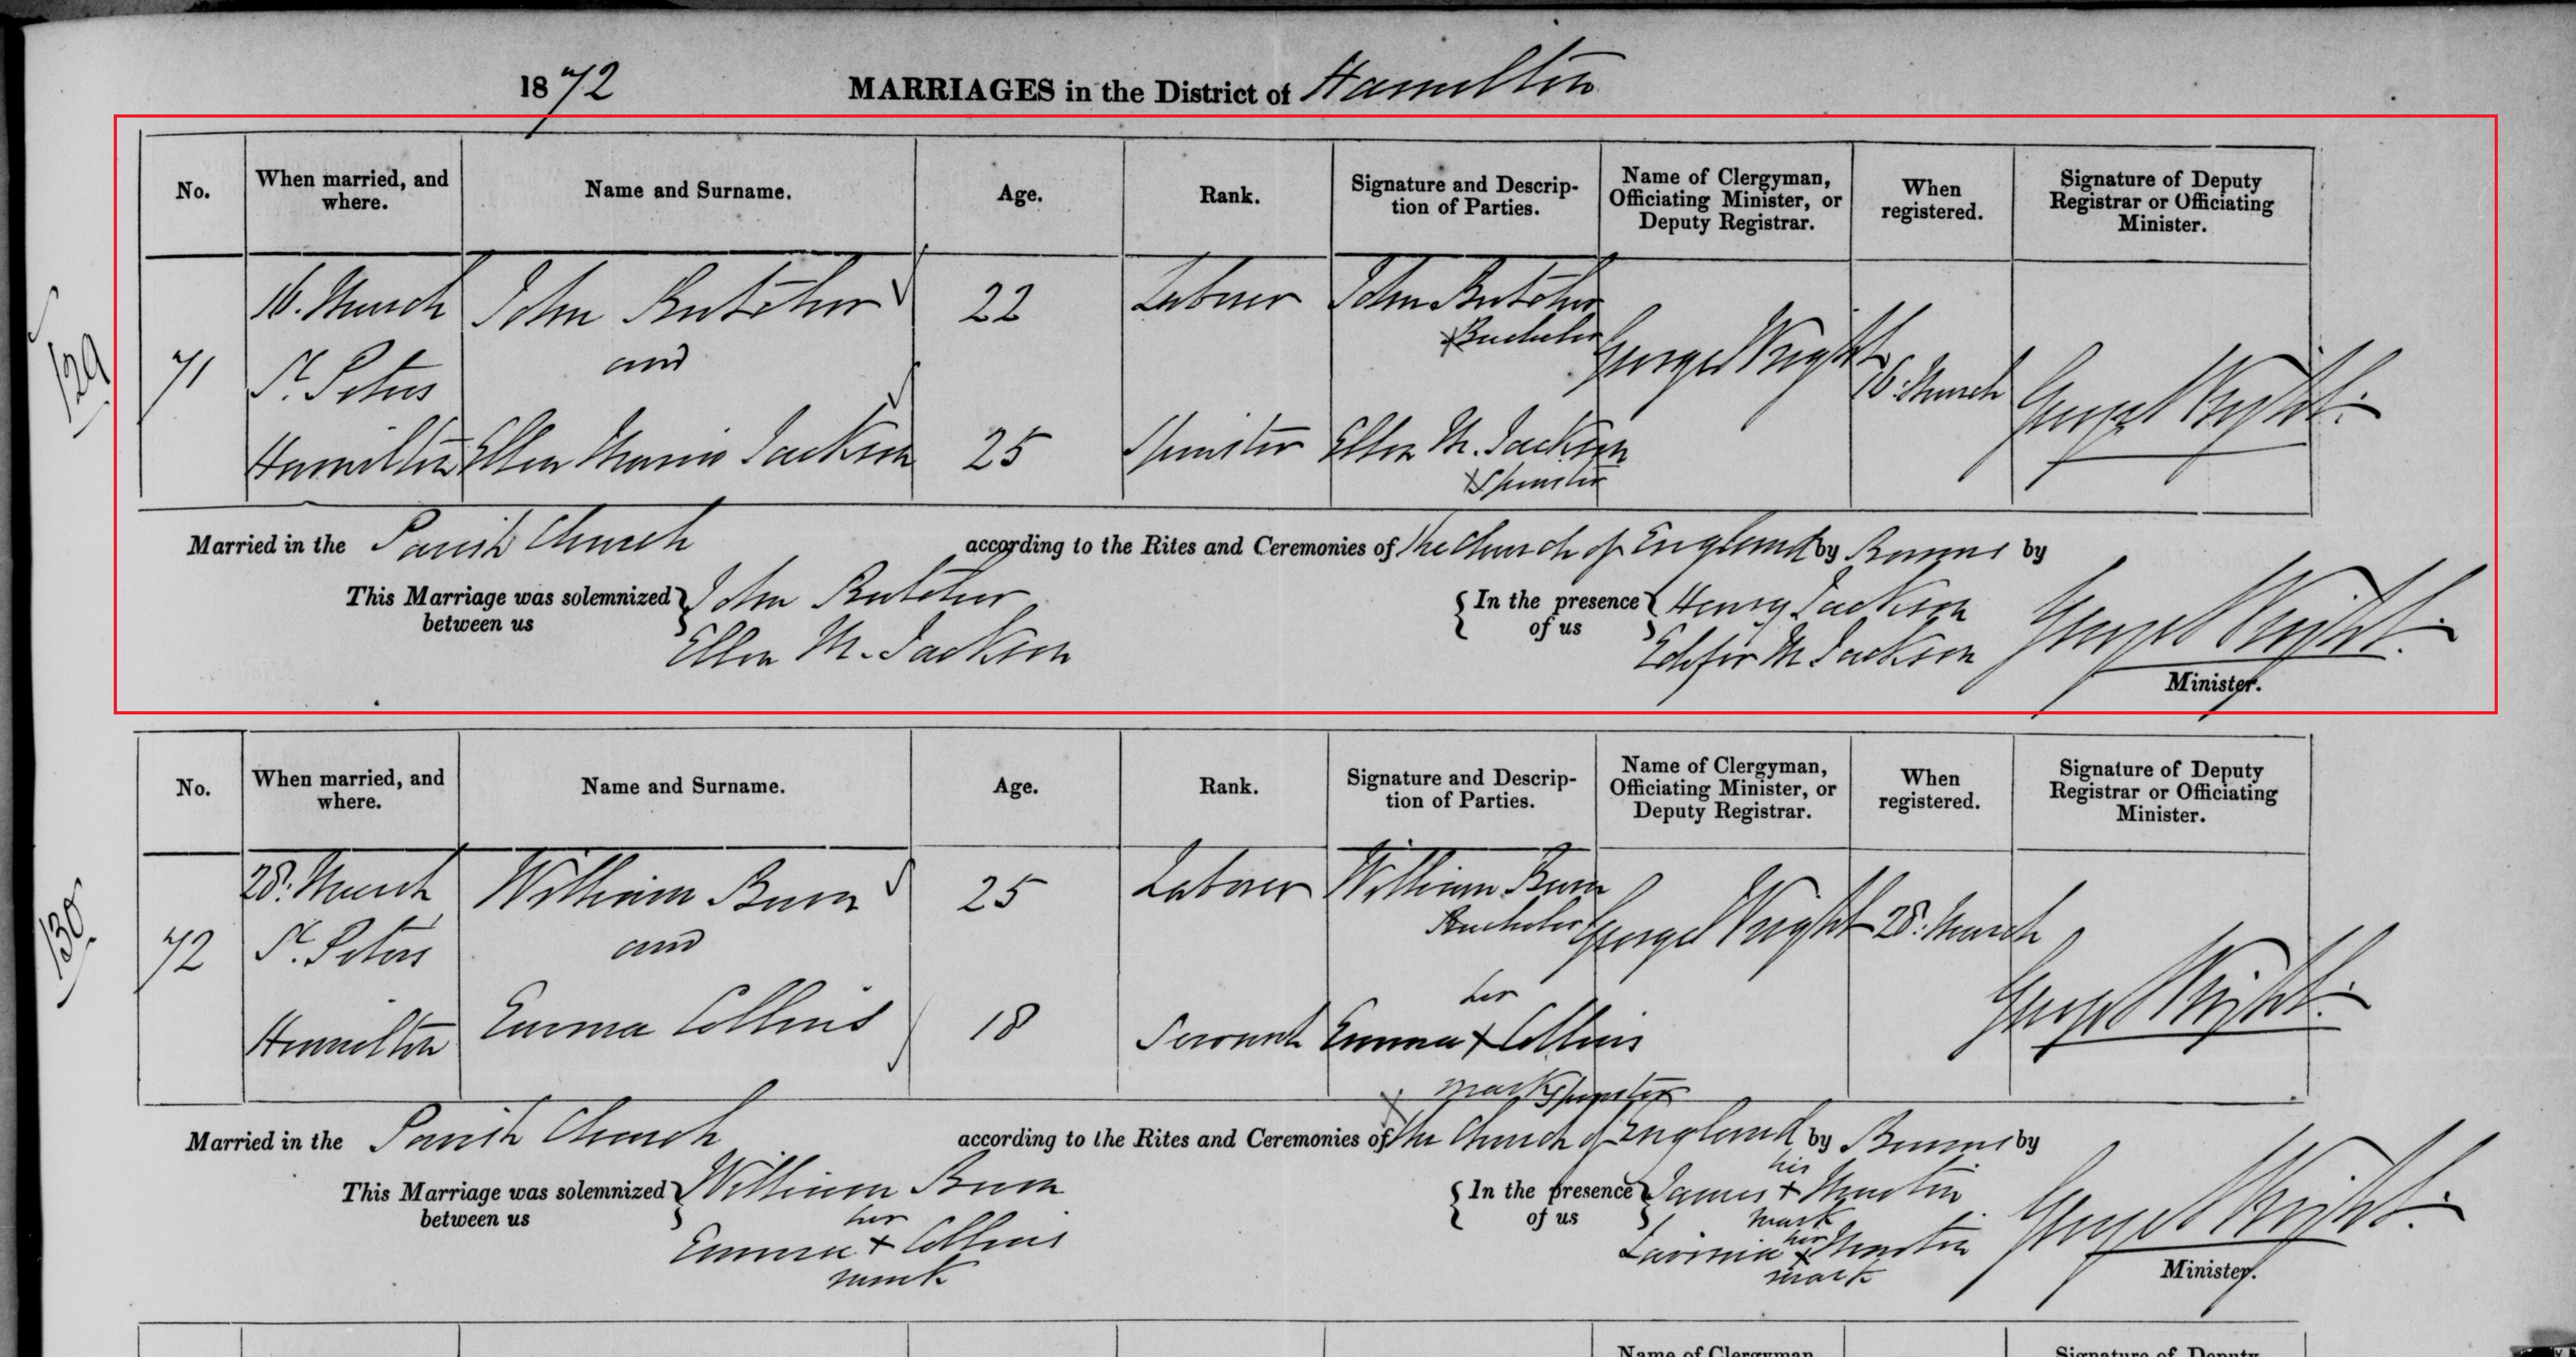 1872 MARRIAGES in the District of Hamilton
No. When married, and where. Name and Surname. Age. Rank. Signature and Description of Parties. Name of Clergyman, Officiating Minister, or Deputy Registrar. When registered. Signature of Deputy Registrar or Officiating Minister.
129
16. March John Butcher 22 Laborer John Butcher
Bachelor
71 St. Peters and George Wright 16. March George Wright
Hamilton Ellen Maria Jackson 25 Spinster Ellen M. Jackson
Spinster
Married in the Parish Church according to the Rites and Ceremonies of the Church of England by Banns by
This Marriage was solemnized between us John Butcher In the presence of us Henry Jackson George Wright
Ellen M. Jackson M Jackson
Minister.
No. When married, and where. Name and Surname. Age. Rank. Signature and Description of Parties. Name of Clergyman, Officiating Minister, or Deputy Registrar. When registered. Signature of Deputy Registrar or Officiating Minister.
130
28. March William Burn 25 Laborer William Burn
Bachelor
72 St. Peters and George Wright 28. March George Wright
her
Hamilton Emma Collins 18 Servant Emma x Collins
mark Spinster
Married in the Parish Church according to the Rites and Ceremonies of the Church of England by Banns by
his
This Marriage was solemnized between us William Burn In the presence of us James + Martin George Wright
her mark
Emma + Collins her
Lavinia x Martin
mark mark
Minister.
Name of Clergyman, Signature of Deputy